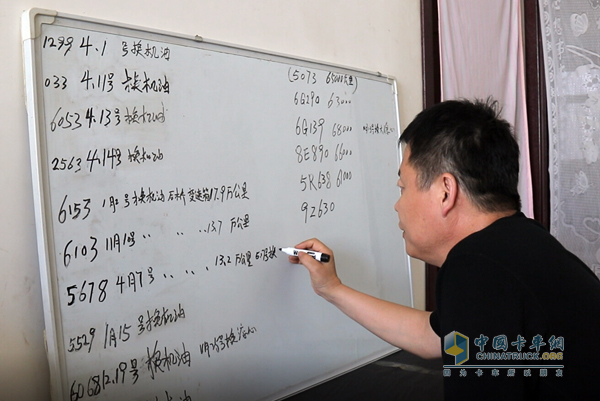 1299 4.1 号换机油
033 4.11号换机油
6053 4.13号换机油
2563 4.14号 换机油
6153 1月2号换机油 后桥 变速箱17.9万公里
6103 11月1号 〃 〃 〃 13.7 万公里
5678 4月7号 〃 〃 〃 13.2 万公里
5529 1月15号换机油
6068 12.19号 换机油
机油
(5073 65000公里
6G290 63000
6G139 68000
8E890 66000
5R638 61000
9Z630
中国卡车网
CHINATRUCK.ORG
因为卡车所以朋友